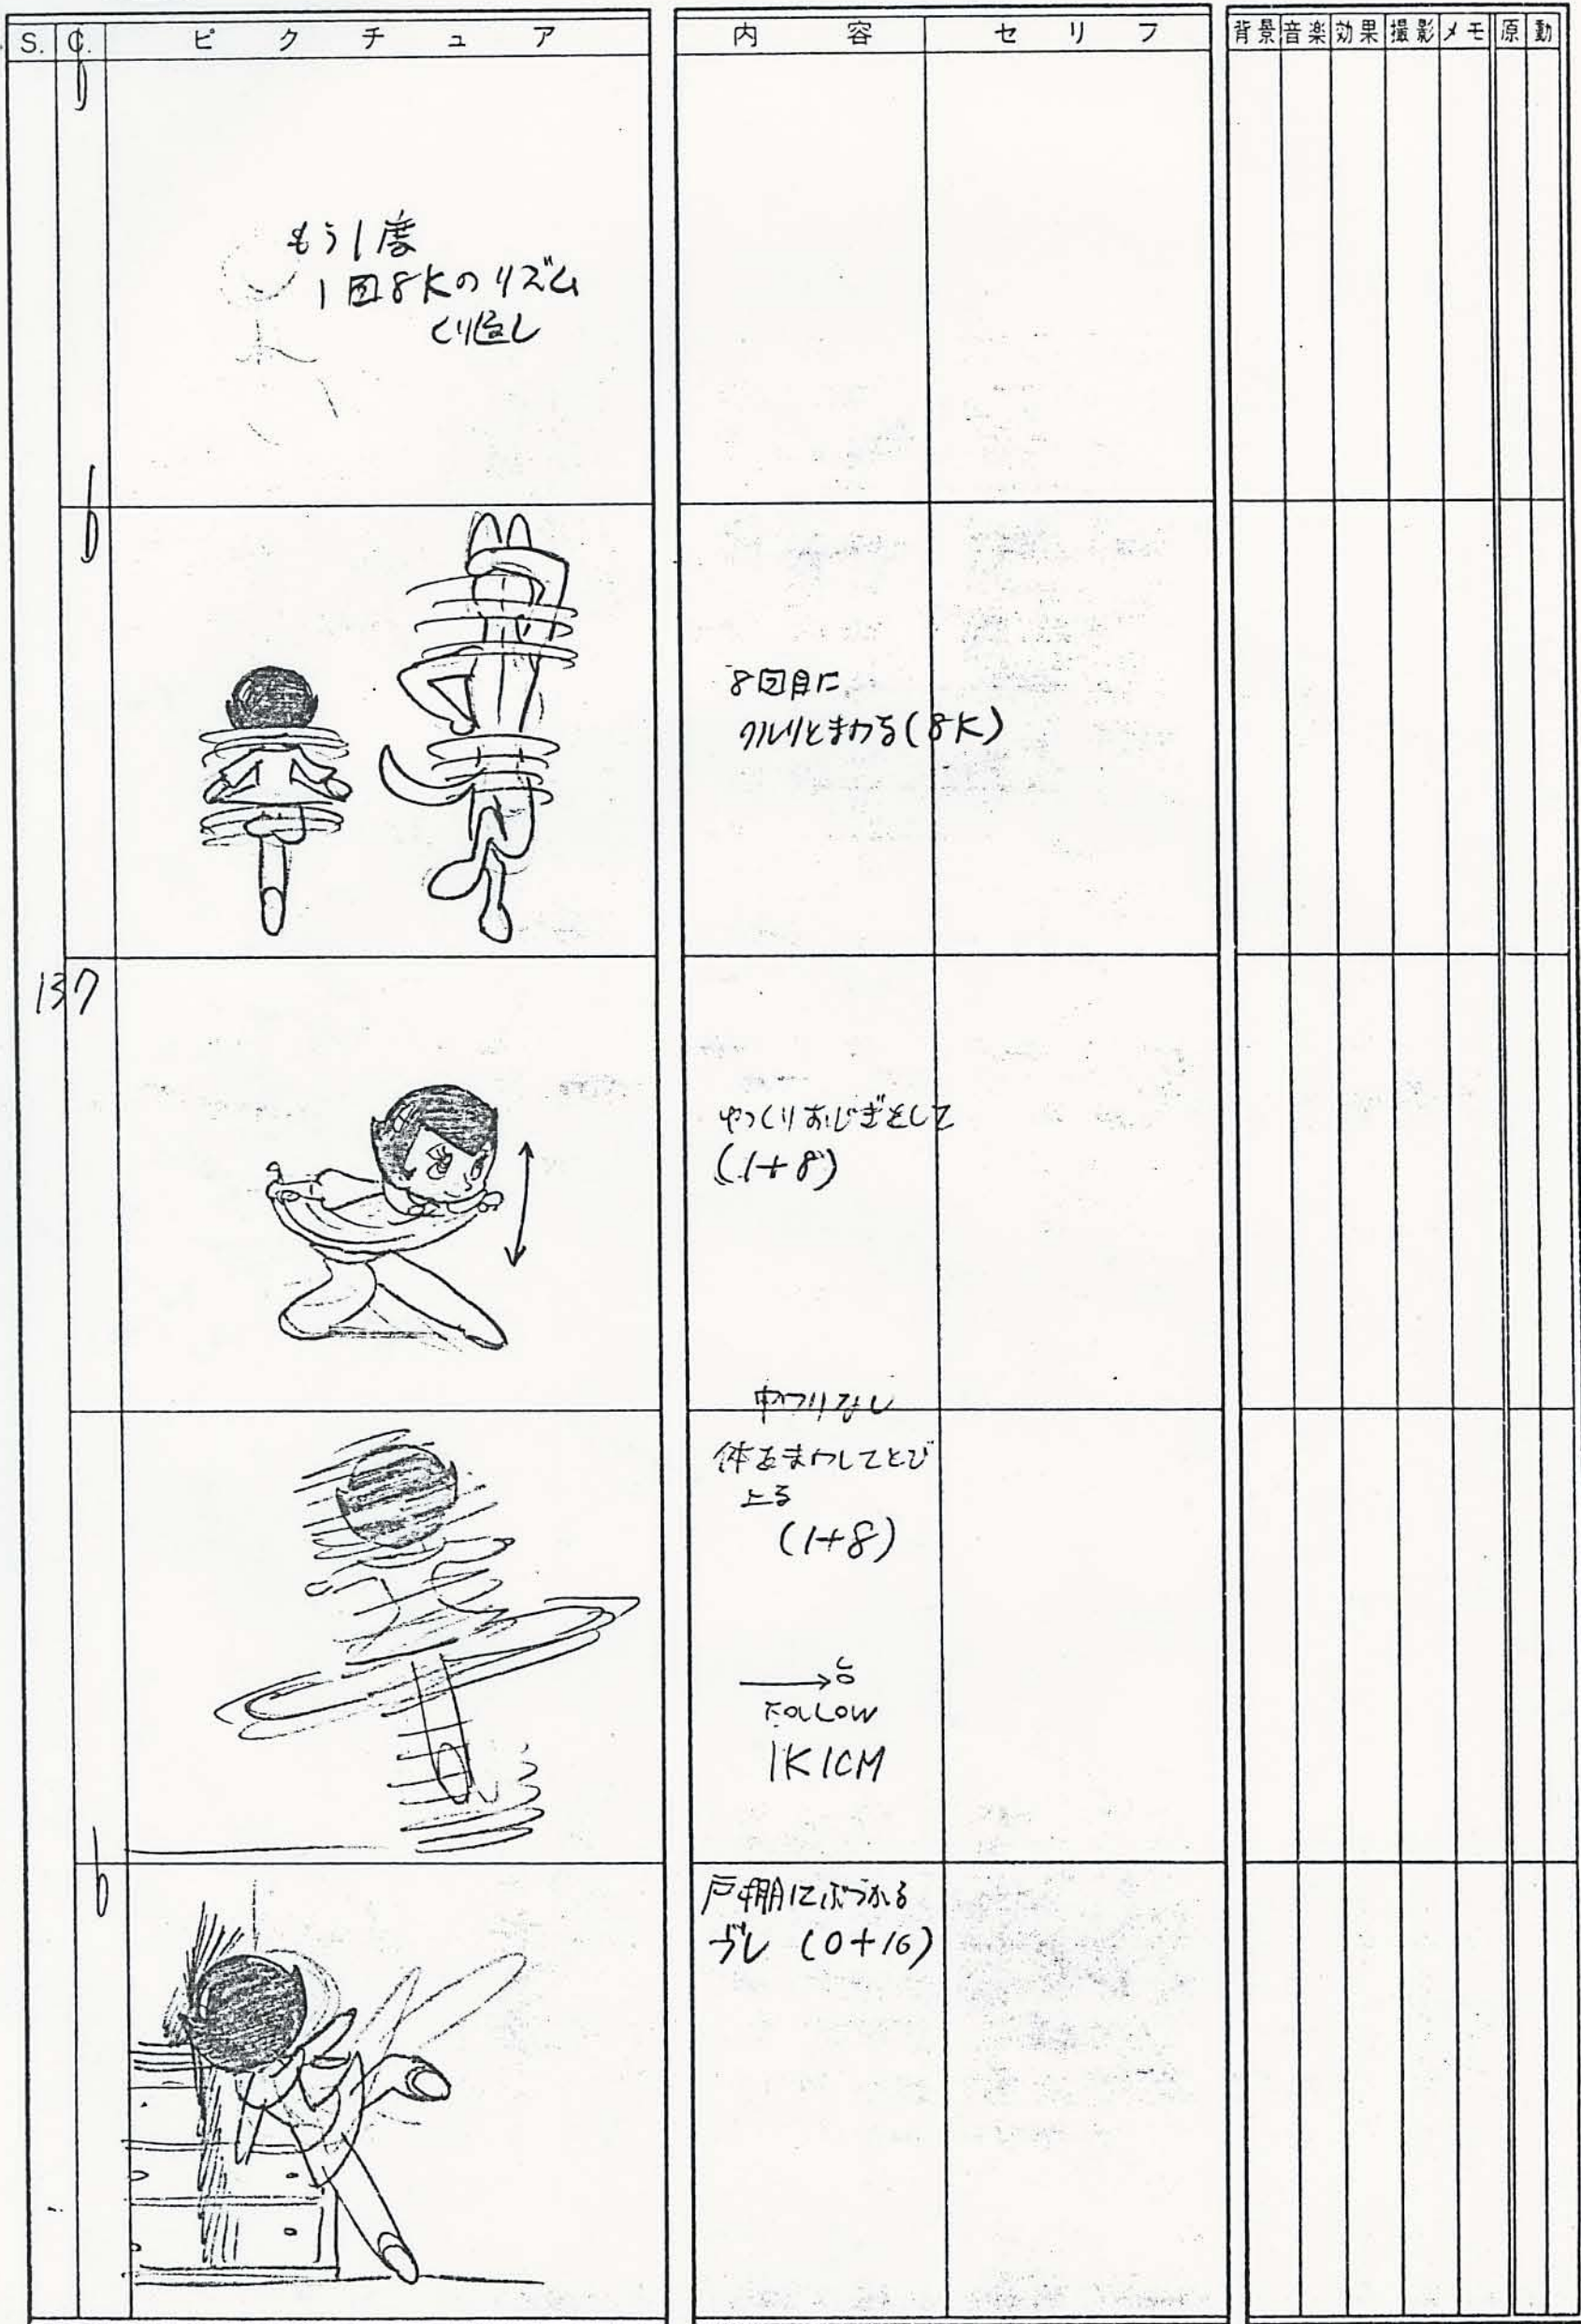 S. C. ピクチュア 内容 セリフ 背景 音楽 効果 撮影 メモ 原 動
もう1度
1回8Kのリズム
くり返し
8回目に
クルリとまわる(8K)
137
ゆっくりおじぎをして
(1+8)
中ワリなし
体をまわしてとび
上る
(1+8)
FOLLOW
1K1CM
戸棚にぶつかる
ブレ (0+16)